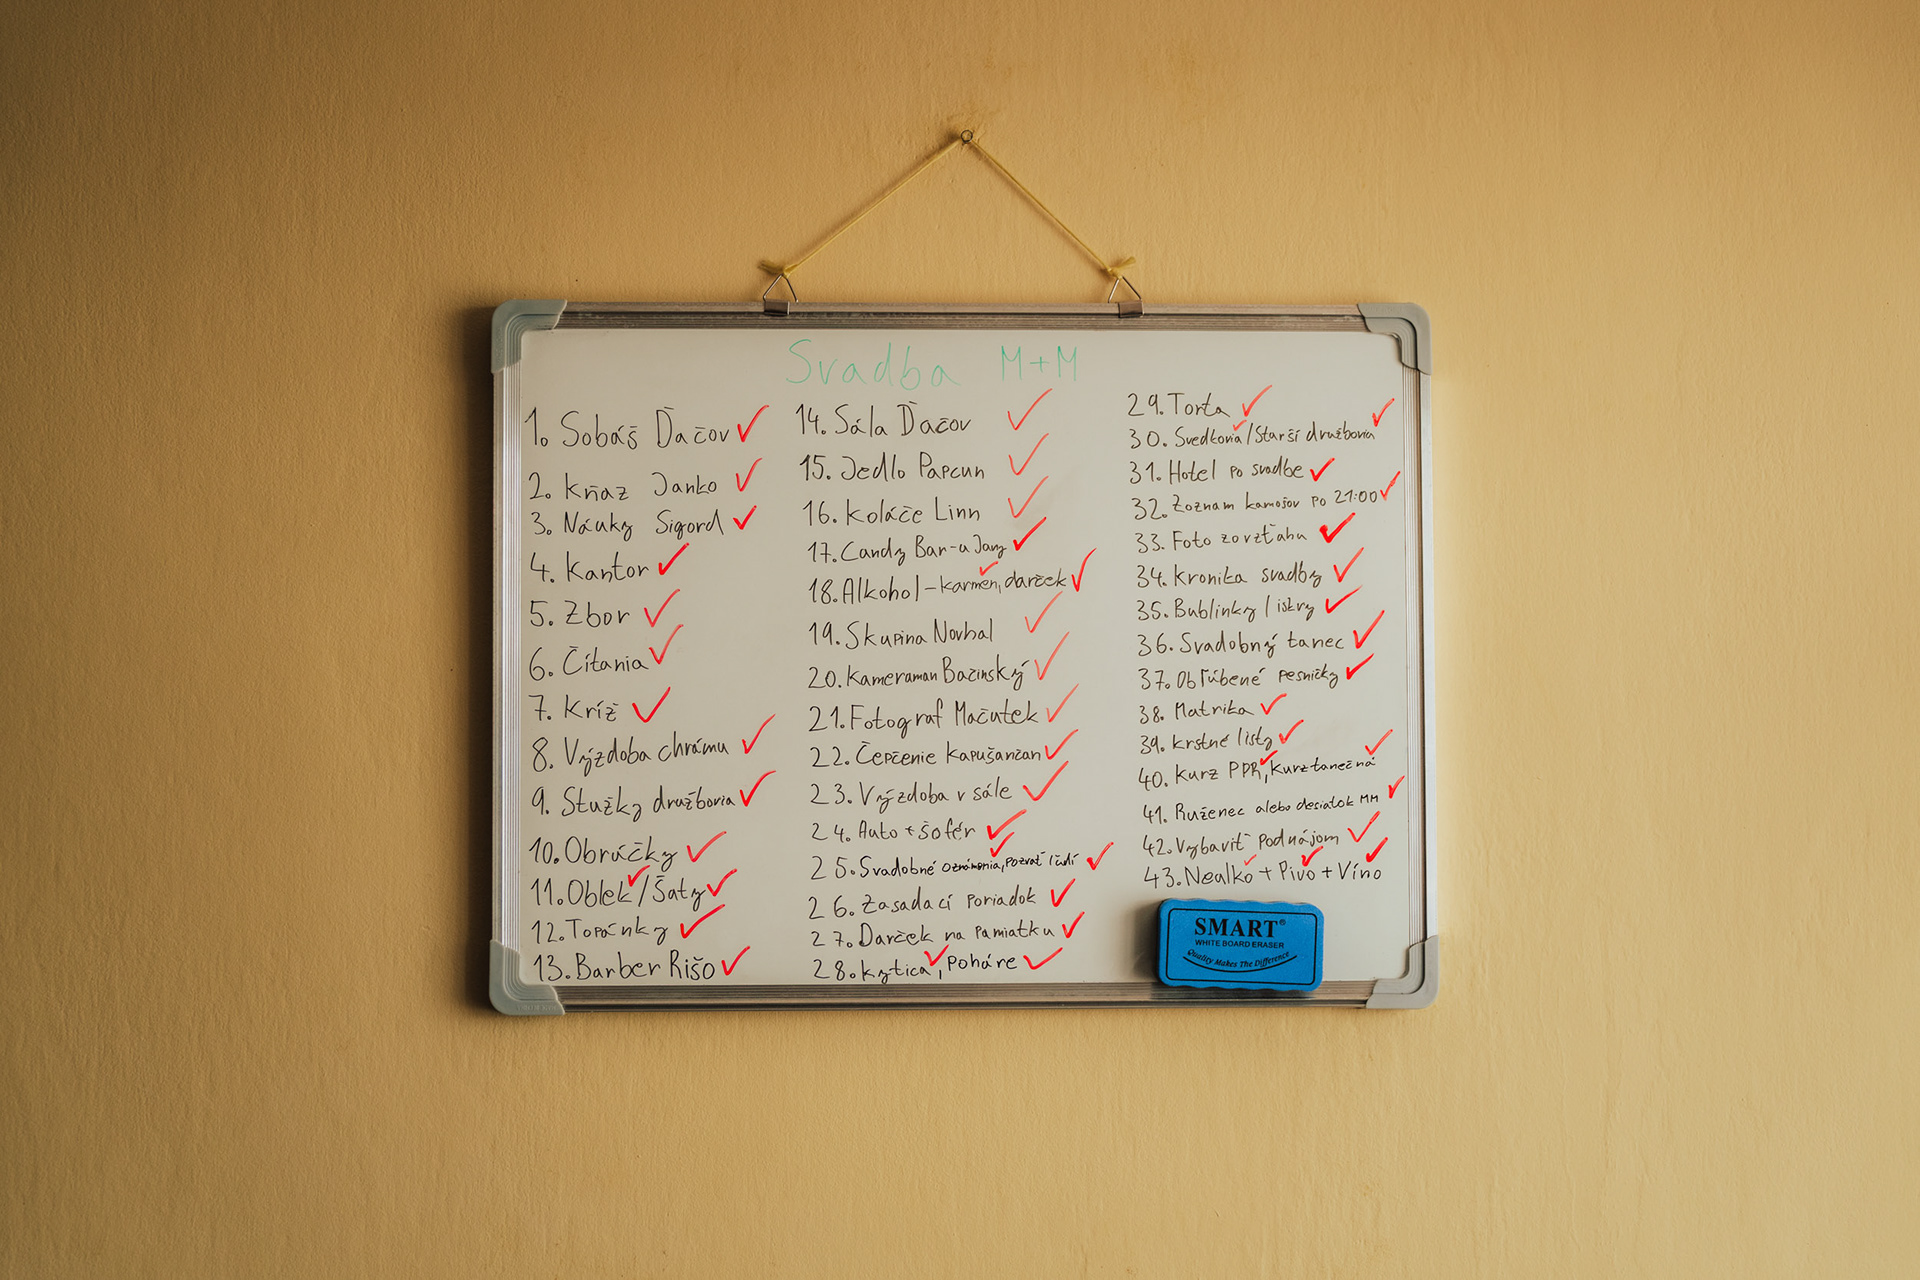 Svadba M+M
1. Sobáš Ďačov
2. Kňaz Janko
3. Náuky Sigord
4. Kantor
5. Zbor
6. Čítania
7. Kríž
8. Výzdoba chrámu
9. Stužky družbovia
10. Obrúčky
11. Oblek/Šaty
12. Topánky
13. Barber Rišo
14. Sála Ďačov
15. Jedlo Papcun
16. Koláče Linn
17. Candy Bar-u Jany
18. Alkohol-karmen, darček
19. Skupina Novbal
20. Kameraman Bačinský
21. Fotograf Mačutek
22. Čepčenie Kapušančan
23. Výzdoba v sále
24. Auto + šofér
25. Svadobné oznámenia, pozvať ľudí
26. Zasadací poriadok
27. Darček na pamiatku
28. Kytica, Poháre
29. Torta
30. Svedkovia/Starší družbovia
31. Hotel po svadbe
32. Zoznam kamošov po 21:00
33. Foto zo vzťahu
34. Kronika svadby
35. Bublinky/iskry
36. Svadobný tanec
37. Obľúbené pesničky
38. Matrika
39. Krstné listy
40. Kurz PPR, Kurz tanečná
41. Ruženec alebo desiatok MM
42. Vybaviť podnájom
43. Nealko + Pivo + Víno
SMART®
WHITE BOARD ERASER
Quality Makes The Difference